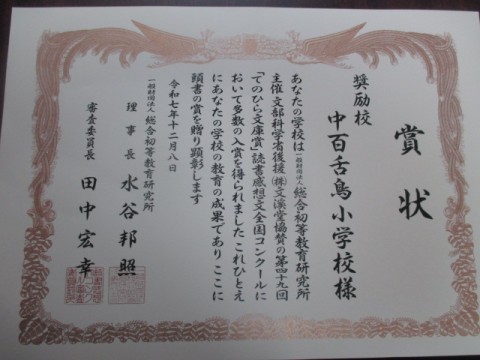 賞状
奨励校
中百舌鳥小学校様
あなたの学校は一般財団法人総合初等教育研究所
主催文部科学省後援㈱文溪堂協賛の第四十九回
「てのひら文庫賞」読書感想文全国コンクールに
おいて多数の入賞を得られました これひとえ
にあなたの学校の教育の成果であり ここに
頭書の賞を贈り顕彰します
令和七年十二月八日
一般財団法人 総合初等教育研究所
理事長 水谷邦照
審査委員長 田中宏幸